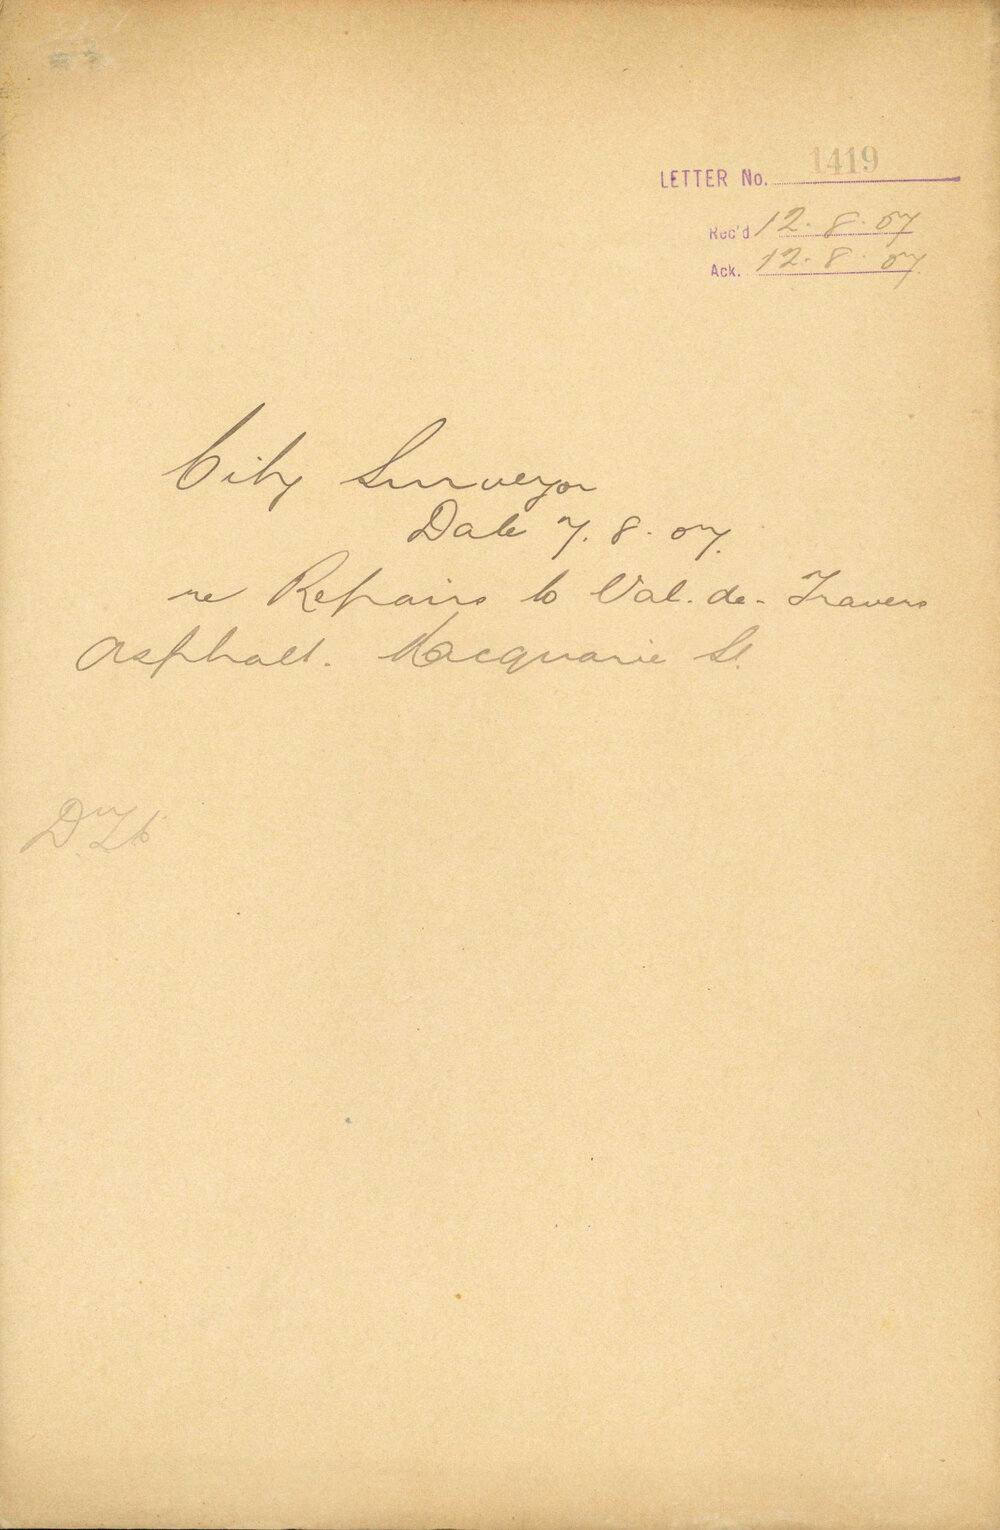 LETTER No. 1419
Rec'd 12.8.07
Ack. 12.8.07
City Surveyor
Date 7.8.07.
re Repairs to Val-de-Travers
Asphalt. Macquarie St.